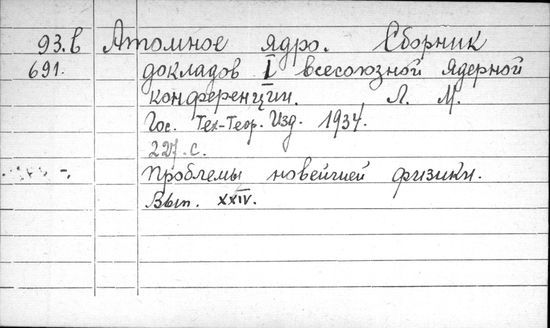 93.в Атомное ядро. Сборник
691. докладов I всесоюзной ядерной
конференции. Л. М.
Гос. Тех-Теор. Изд. 1934.
227 с.
Проблемы новейшей физики.
Вып. XXIV.